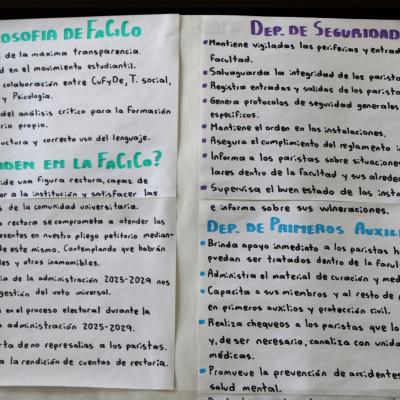 OSOFIA DE FACICO
de la máxima transparencia.
d en el movimiento estudiantil.
colaboración entre CuFyDe, T. social,
y Psicología.
del análisis crítico para la formación
rio propio.
uctura y correcto uso del lenguaje.
IDEN EN LA FACICO?
ide una figura rectora, capaz de
or a la institución y satisfacer las
s de la comunidad universitaria.
rectora se comprometa a atender las
esentes en nuestro pliego petitorio median-
de este mismo. Contemplando que habrán
les y otros inamovibles.
ia de la administración 2025-2029 nos
gestión del voto universal.
en el proceso electoral durante la
a administración 2025-2029.
rta de no represalias a los paristas.
a la rendición de cuentas de rectoría.
DEP. DE SEGURIDAD
Mantiene vigiladas las periferias y entrad
facultad.
Salvaguarda la integridad de los parist
Registra entradas y salidas de los parist
Genera protocolos de seguridad generales
específicos.
Mantiene el orden en las instalaciones.
Asegura el cumplimiento del reglamento in
Informa a los paristas sobre situacione
lares dentro de la facultad y sus alrede
Supervisa el buen estado de las insta
e informa sobre sus vulneraciones.
DEP. DE PRIMEROS AUXIL
Brinda apoyo inmediato a los paristas h
puedan ser tratados dentro de la facul
Administra el material de curación y med
Capacita a sus miembros y al resto de p
en primeros auxilios y protección civil.
Realiza chequeos a los paristas que lo
y, de ser necesario, canaliza con unida
médicas.
Promueve la prevención de accidentes
salud mental.